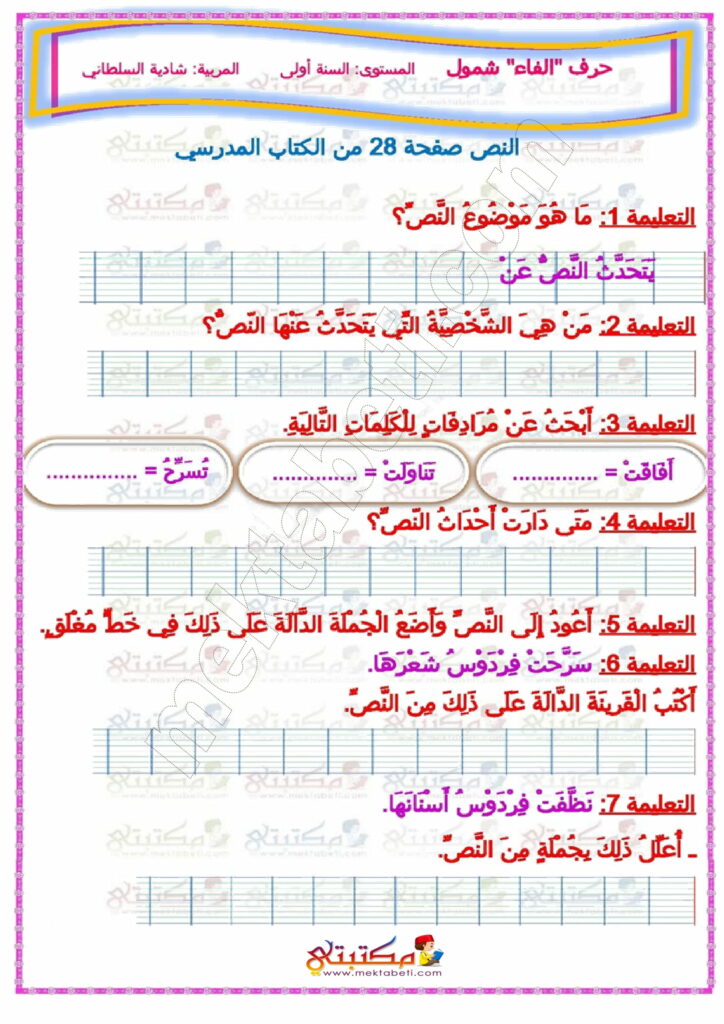 حرف "الفاء" شمول المستوى: السنة أولى المربية: شادية السلطاني
النص صفحة 28 من الكتاب المدرسي
التعليمة 1: مَا هُوَ مَوْضُوعُ النَّصِّ؟
يَتَحَدَّثُ النَّصُّ عَنْ
التعليمة 2: مَنْ هِيَ الشَّخْصِيَّةُ الَّتِي يَتَحَدَّثُ عَنْهَا النّصُّ؟
التعليمة 3: أَبْحَثُ عَنْ مُرَادِفَاتٍ لِلْكَلِمَاتِ التَّالِيَةِ.
أَفَاقَتْ = .............. تَنَاوَلَتْ = .............. تُسَرِّحُ = ...............
التعليمة 4: مَتَى دَارَتْ أَحْدَاثُ النّصِّ؟
التعليمة 5: أَعُودُ إِلَى النَّصِّ وَأَضَعُ الْجُمْلَةَ الدَّالَةَ عَلَى ذَلِكَ فِي خَطٍّ مُغْلَقٍ.
التعليمة 6: سَرَّحَتْ فِرْدَوْسُ شَعْرَهَا.
أَكْتُبُ الْقَرِينَةَ الدَّالَةَ عَلَى ذَلِكَ مِنَ النَّصِّ.
التعليمة 7: نَظَّفَتْ فِرْدَوْسُ أَسْنَانَهَا.
ـ أُعَلِّلُ ذَلِكَ بِجُمْلَةٍ مِنَ النَّصِّ.
مكتبتي
www.mektabeti.com
mektabetik.com